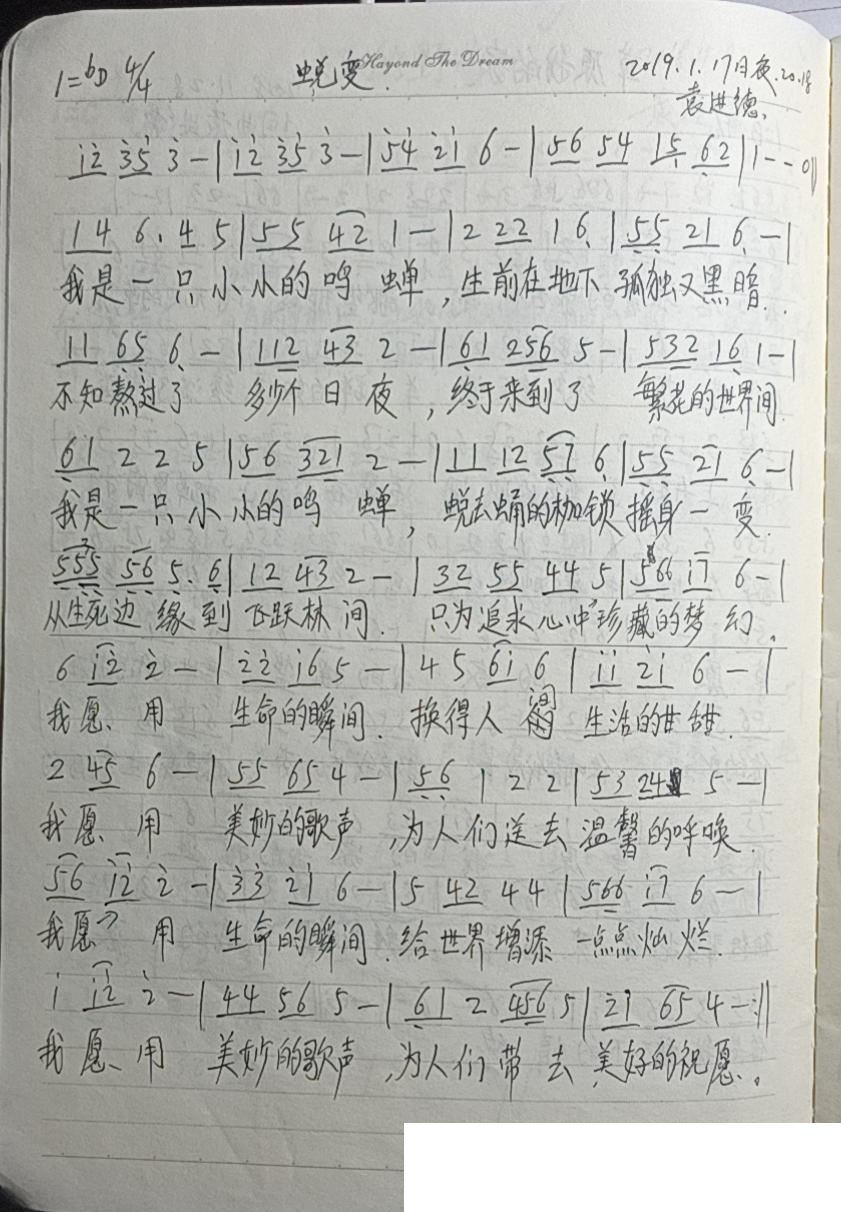 1=ᵇD 4/4 蜕变. Hayond The Dream 2019.1.17日夜.20.18
袁进德.
i̇2̇ 3̇5̇ 3̇ - | i̇2̇ 3̇5̇ 3̇ - | 5̇4̇ 2̇i̇ 6 - | 56 54 15 62 | 1 - - 0 ||
14 6. 4 5 | 55 42 1 - | 2 22 1 6 | 55 21 6 - |
我是一只小小的鸣蝉,生前在地下孤独又黑暗.
11 65 6 - | 112 43 2 - | 61 256 5 - | 532 16 1 - |
不知熬过了 多少个日夜,终于来到了 繁花的世界间.
61 2 2 5 | 56 321 2 - | 11 12 57 6 | 55 21 6 - |
我是一只小小的鸣蝉,蜕去蛹的枷锁摇身一变.
555 56 5. 6 | 12 43 2 - | 32 55 44 5 | 566 i̇7 6 - |
从生死边缘到飞跃林间. 只为追求心中珍藏的梦幻.
6 i̇2̇ 2̇ - | 2̇2̇ i̇6 5 - | 4 5 6i̇ 6 | i̇i̇ 2̇i̇ 6 - |
我愿、用 生命的瞬间.换得人间 生活的甘甜.
2 45 6 - | 55 65 4 - | 56 1 2 2 | 53 24 5 - |
我愿、用 美妙的歌声,为人们送去温馨的呼唤.
56 i̇2̇ 2̇ - | 3̇3̇ 2̇i̇ 6 - | 5 42 4 4 | 566 i̇7 6 - |
我愿、用 生命的瞬间.给世界增添一点点灿烂.
i̇ i̇2̇ 2̇ - | 44 56 5 - | 61 2 456 5 | 2̇i̇ 65 4 - :||
我愿、用 美妙的歌声,为人们带去美好的祝愿.。